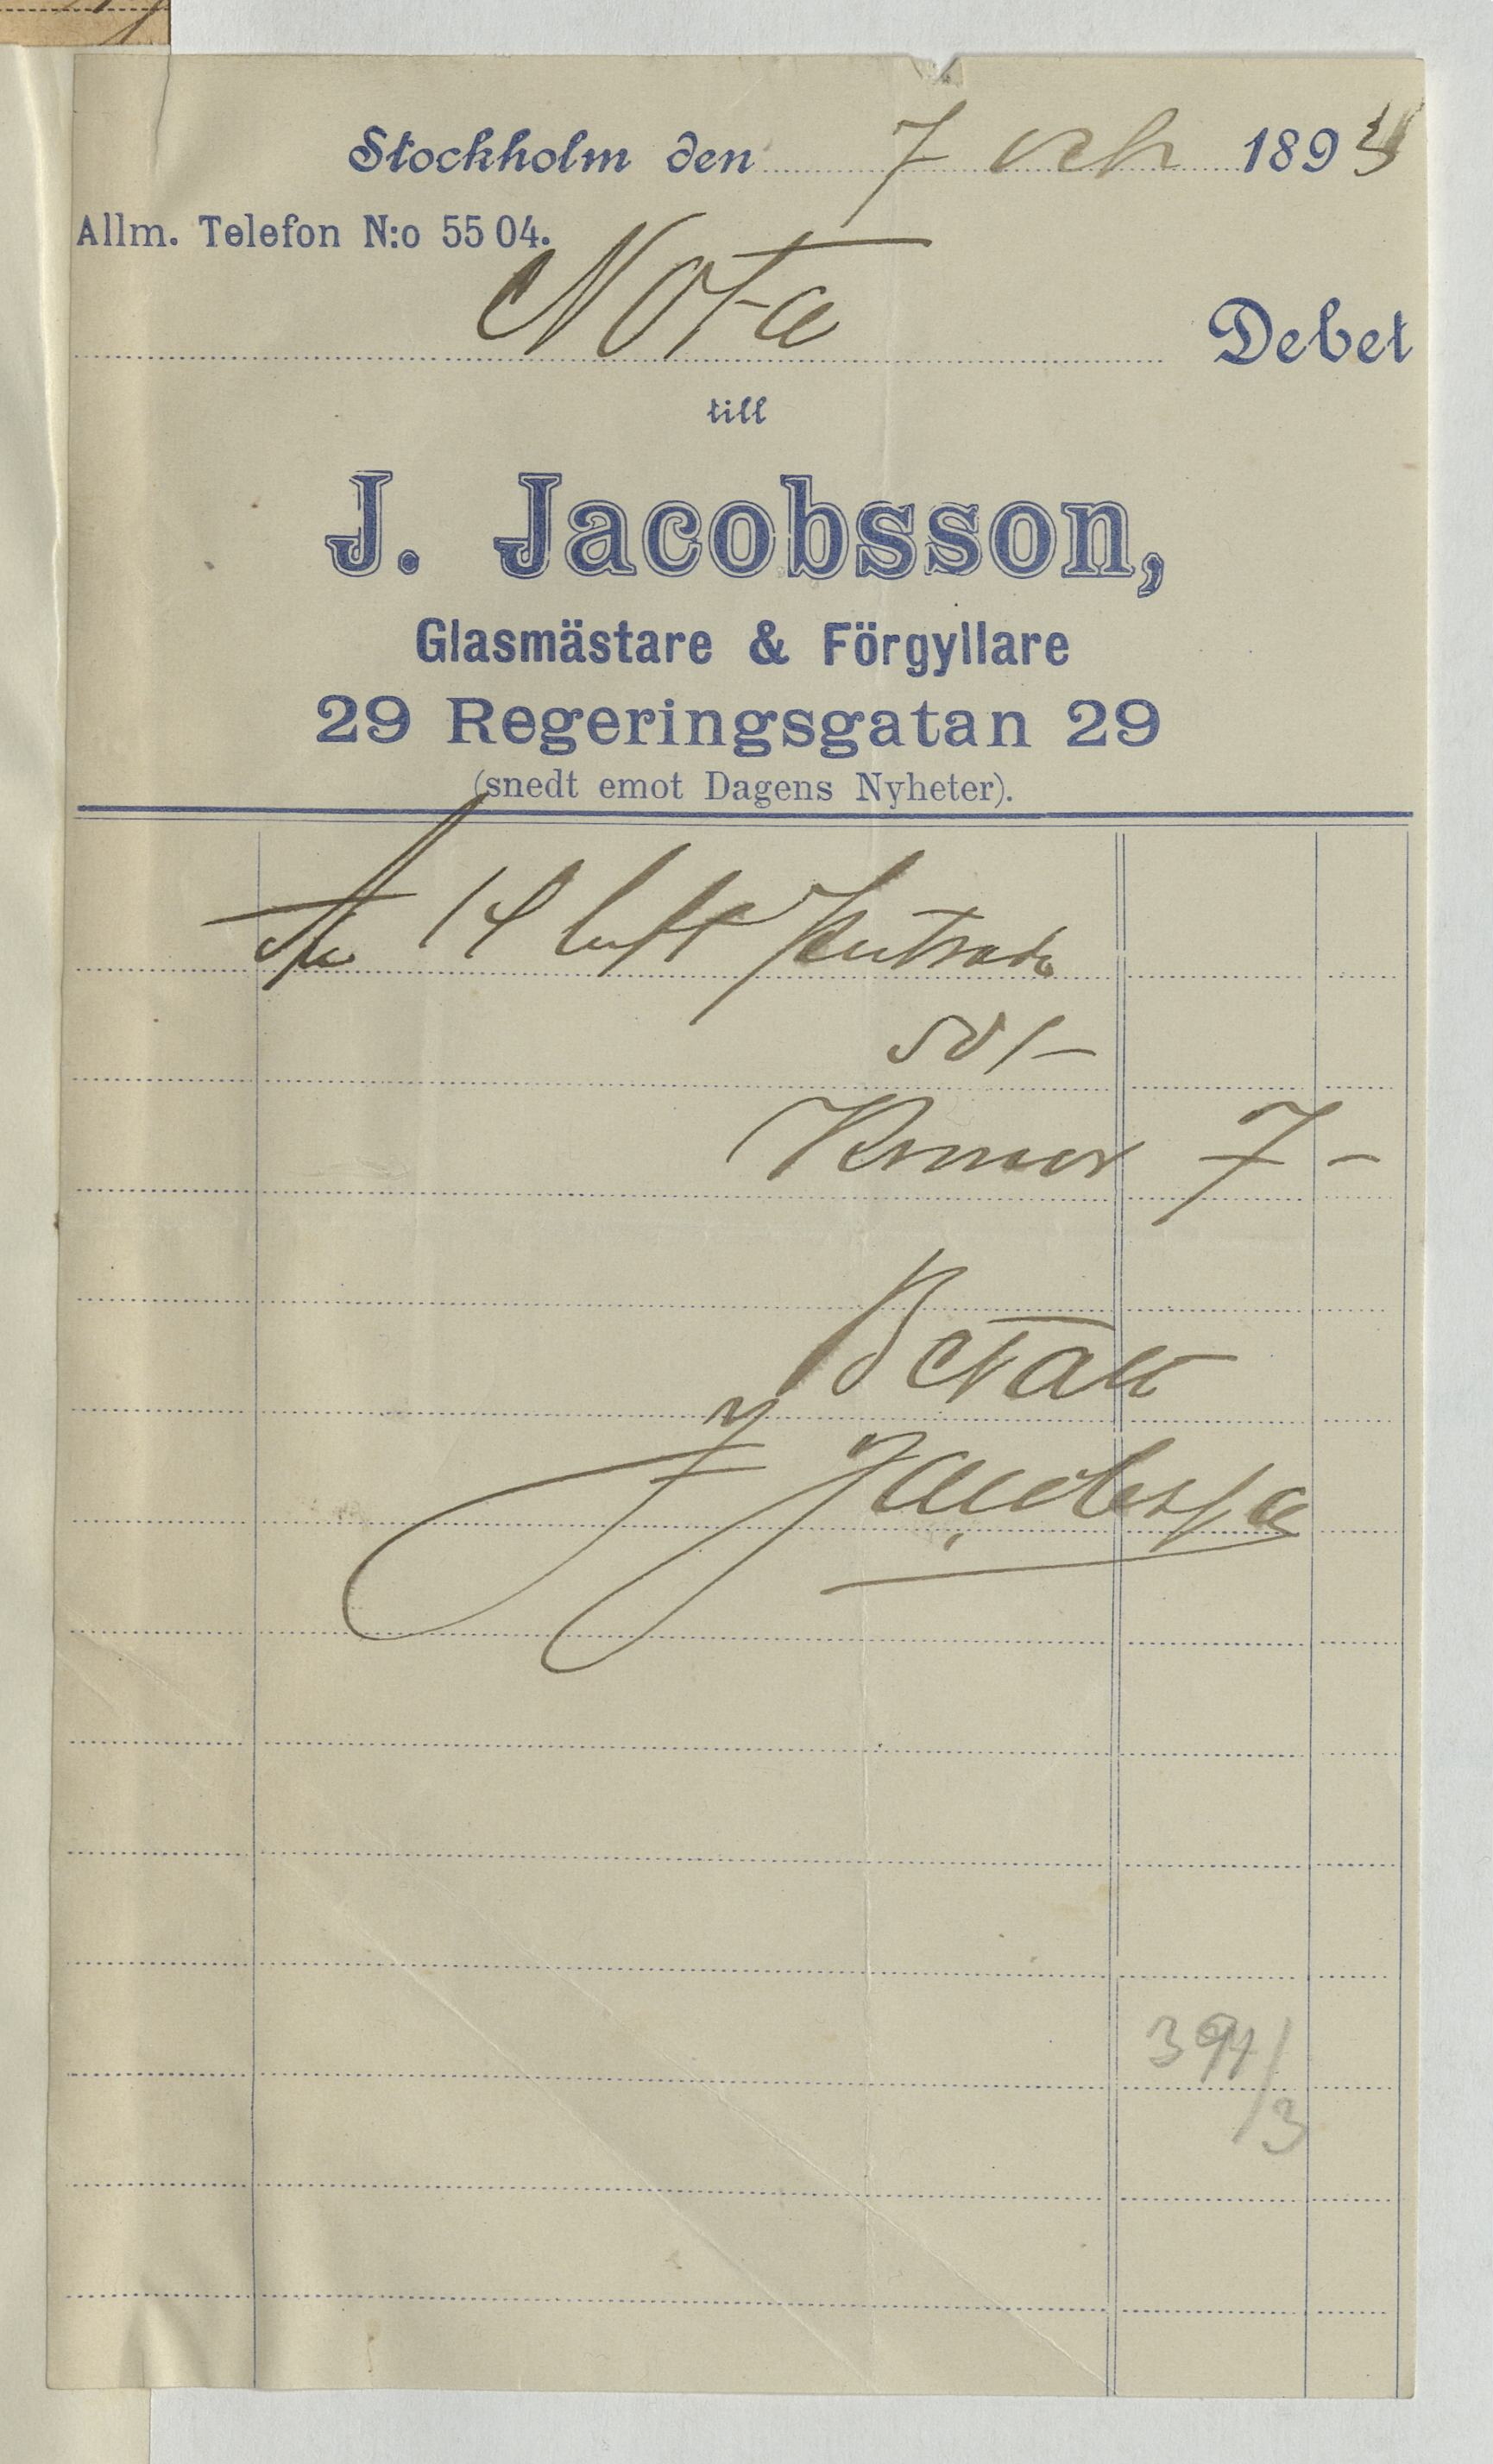 Stockholm den 7 Oct 189
Allm. Telefon N:o 55 04.
Nota Debet
till
J. Jacobsson,
Glasmästare & Förgyllare
29 Regeringsgatan 29
(snedt emot Dagens Nyheter).
14 luft
50/-
Kronor 7 -
Betalt
J Jacobsson
394/3